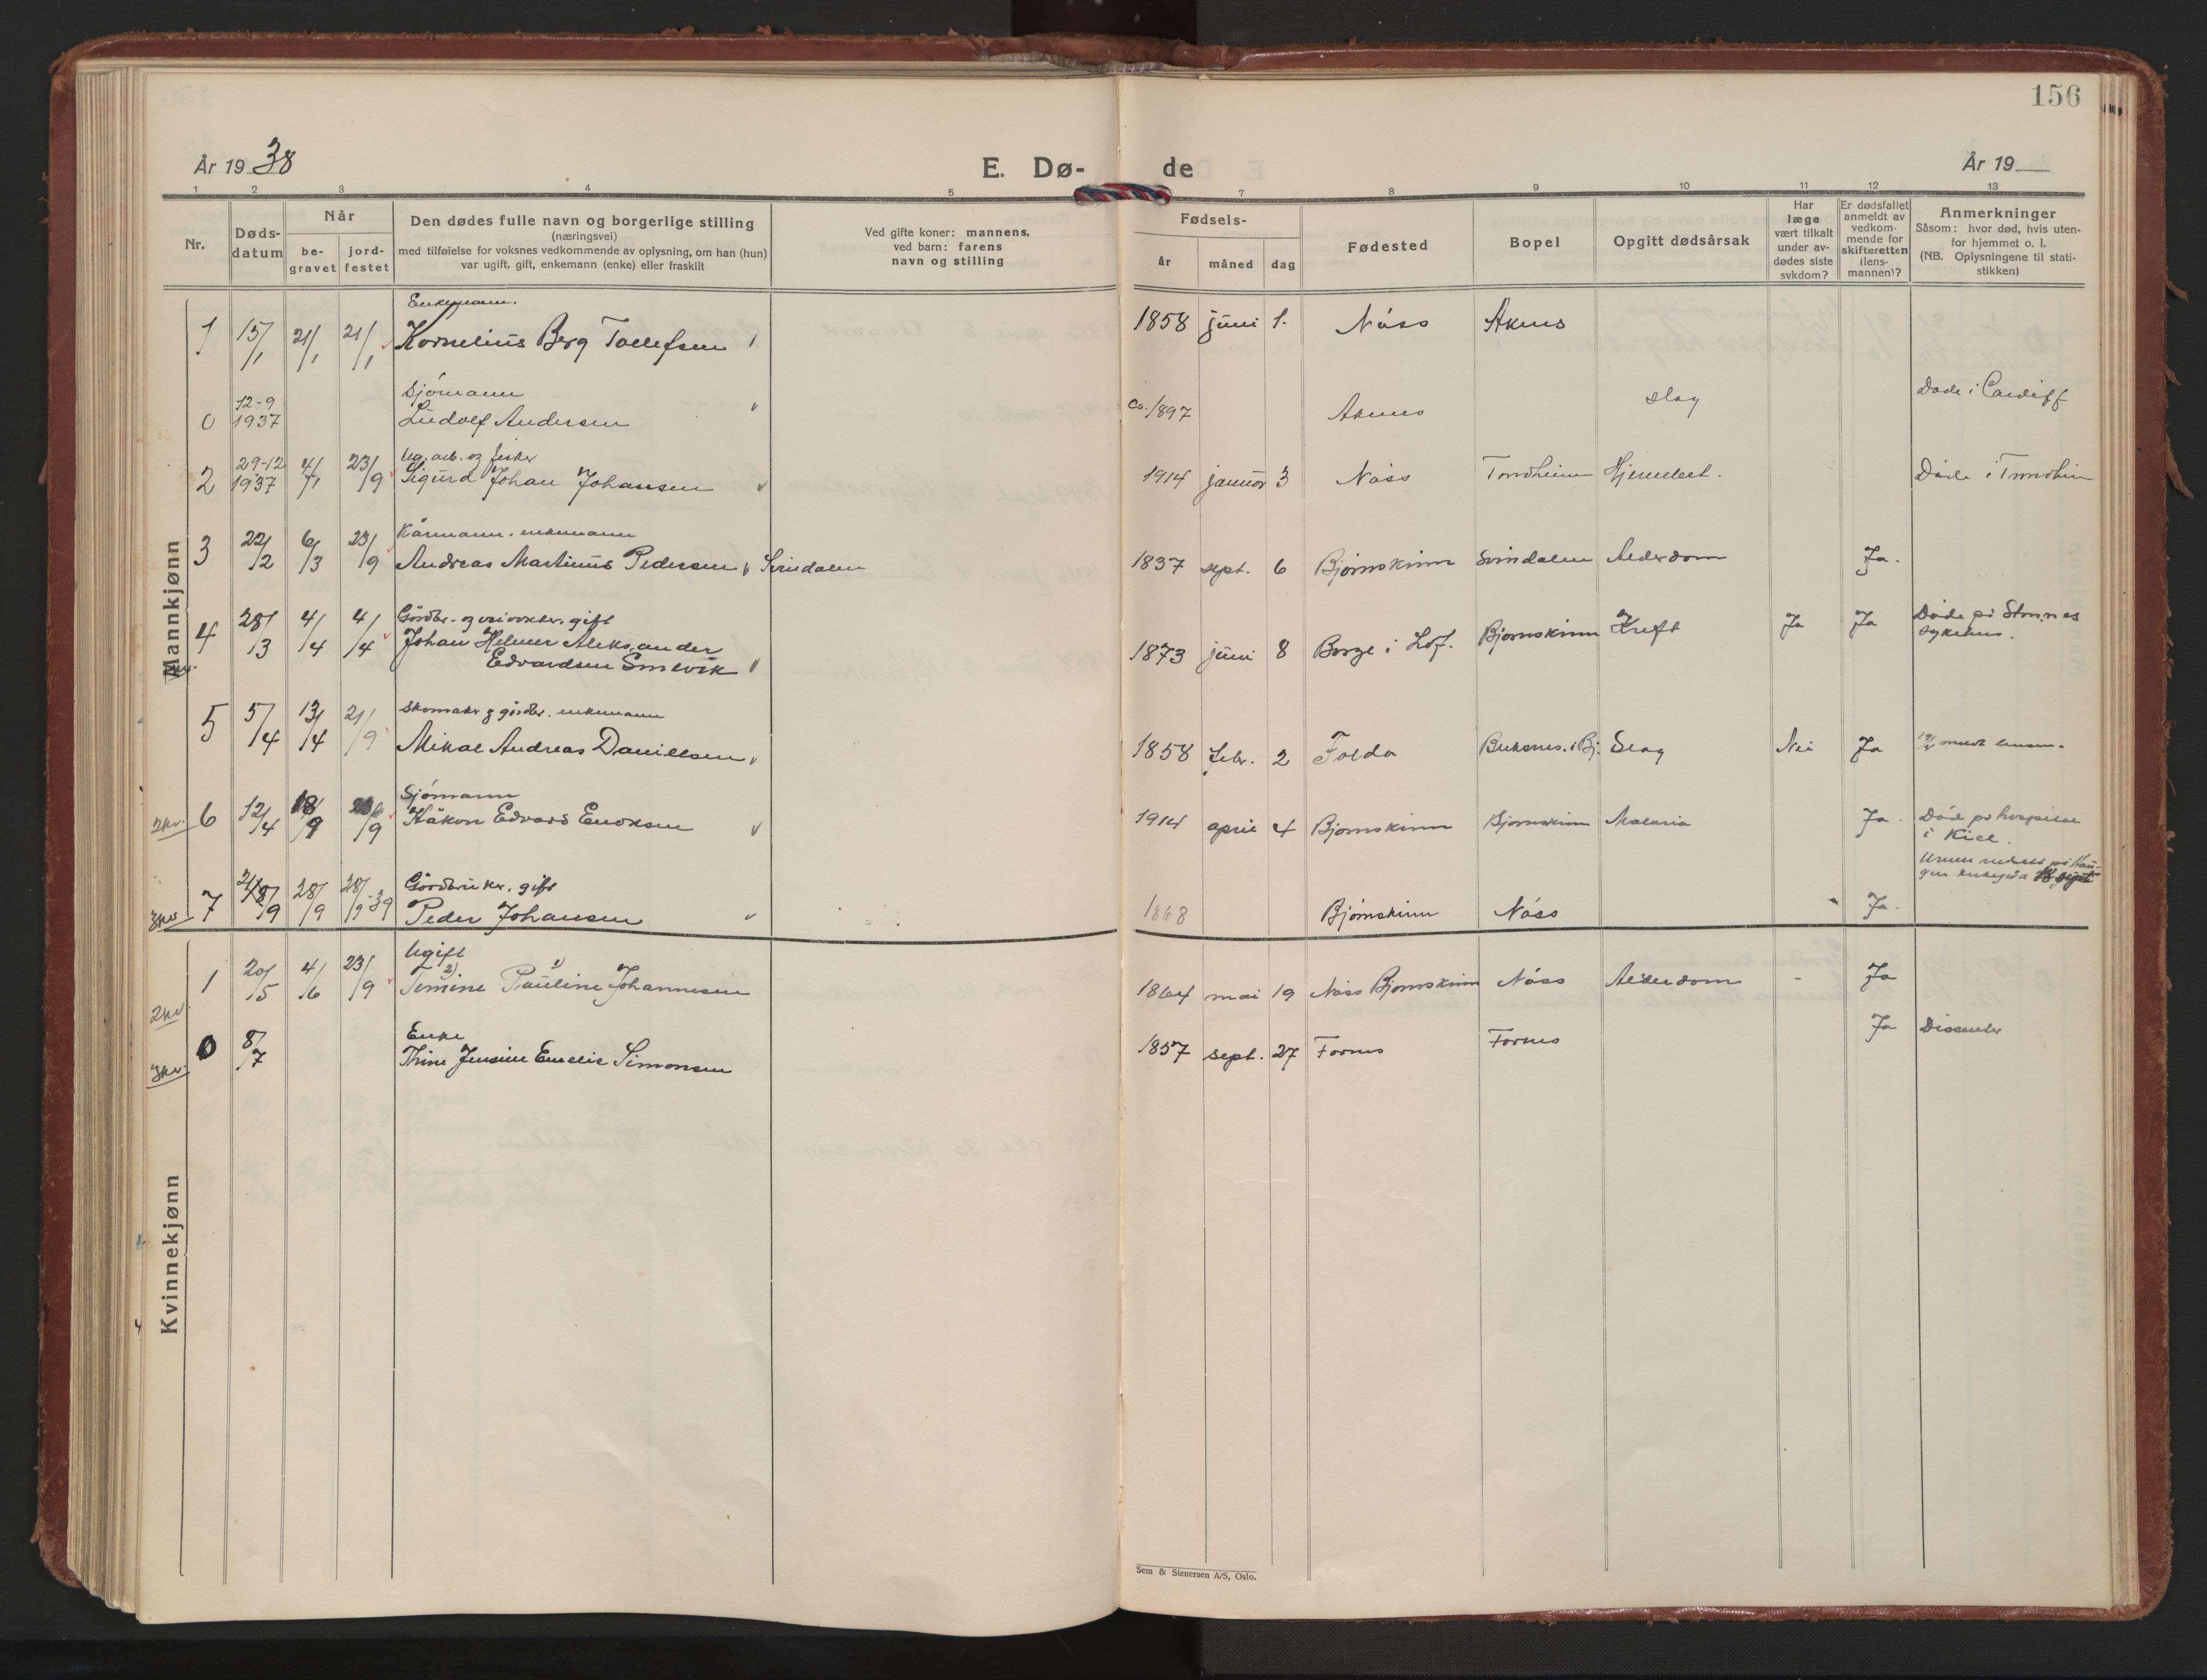 156
År 19 38
E. Dø-
de
År 19
1 2 3 4 5 7 8 9 10 11 12 13
Nr.
Døds-
datum
Når
be-
gravet
jord-
festet
Den dødes fulle navn og borgerlige stilling
(næringsvei)
med tilføielse for voksnes vedkommende av oplysning, om han (hun)
var ugift, gift, enkemann (enke) eller fraskilt
Ved gifte koner: mannens,
ved barn: farens
navn og stilling
Fødsels-
år
måned
dag
Fødested
Bopel
Opgitt dødsårsak
Har
læge
vært tilkalt
under av-
dødes siste
sykdom?
Er dødsfallet
anmeldt av
vedkom-
mende for
skifteretten
(lens-
mannen)?
Anmerkninger
Såsom: hvor død, hvis uten-
for hjemmet o. l.
(NB. Oplysningene til stati-
stikken)
Mannkjønn
Enkemann.
1 15/1 21/1 21/1 Kornelius Berg Tollefsen 1858 juni 1. Nåss Åknes
Sjømann
0 12-9 1937 Ludolf Andersen ca. 1897 Åknes slag Døde i Cardiff
Ug. arb. og fisker
2 29-12 1937 4/1 23/9 Sigurd Johan Johansen 1914 januar 3 Nåss Trondheim Hjernebet. Døde i Trondheim
Kårmann. enkemann
3 22/2 6/3 23/9 Andreas Martinus Pedersen Svindalen 1837 sept. 6 Bjørnskinn Svindalen Alderdom Ja.
Gårdbr. gift
4 28/3 4/4 4/4 Johan Helmer Aleksander
Edvardsen Smevik 1873 juni 8 Borge i Lof. Bjørnskinn Kreft Ja Ja Døde på Stonnes
sykehus.
Skomaker g gårdbr. enkemann
5 5/4 13/4 21/9 Mikal Andreas Daniellsen 1858 febr. 2 Folda Buksnes. i Bj. Slag Nei Ja
Sjømann
2kv. 6 12/4 18/9 /9 Håkon Edvard Enoksen 1914 april 4 Bjørnskinn Bjørnskinn Malaria Ja. Død på hospital
i Kiel.
Urnen nedsatt på Hau-
gen 18 sept
Gårdbruker. gift
3kv 7 /9 28/9 28/9-39 Peder Johansen 1868 Bjørnskinn Nåss Ja.
Kvinnekjønn
Ugift
2kv. 1 20/5 4/6 23/9 Timine 2) Pauline 1) Johannesen 1864 mai 19 Nåss Bjørnskinn Nåss Alderdom - Ja
Enke
3kv. 0 8/7 Thine Jensine Emelie Simonsen 1857 sept. 27 Fornes Fornes Ja Dissenter
Sem & Stenersen A/S, Oslo.